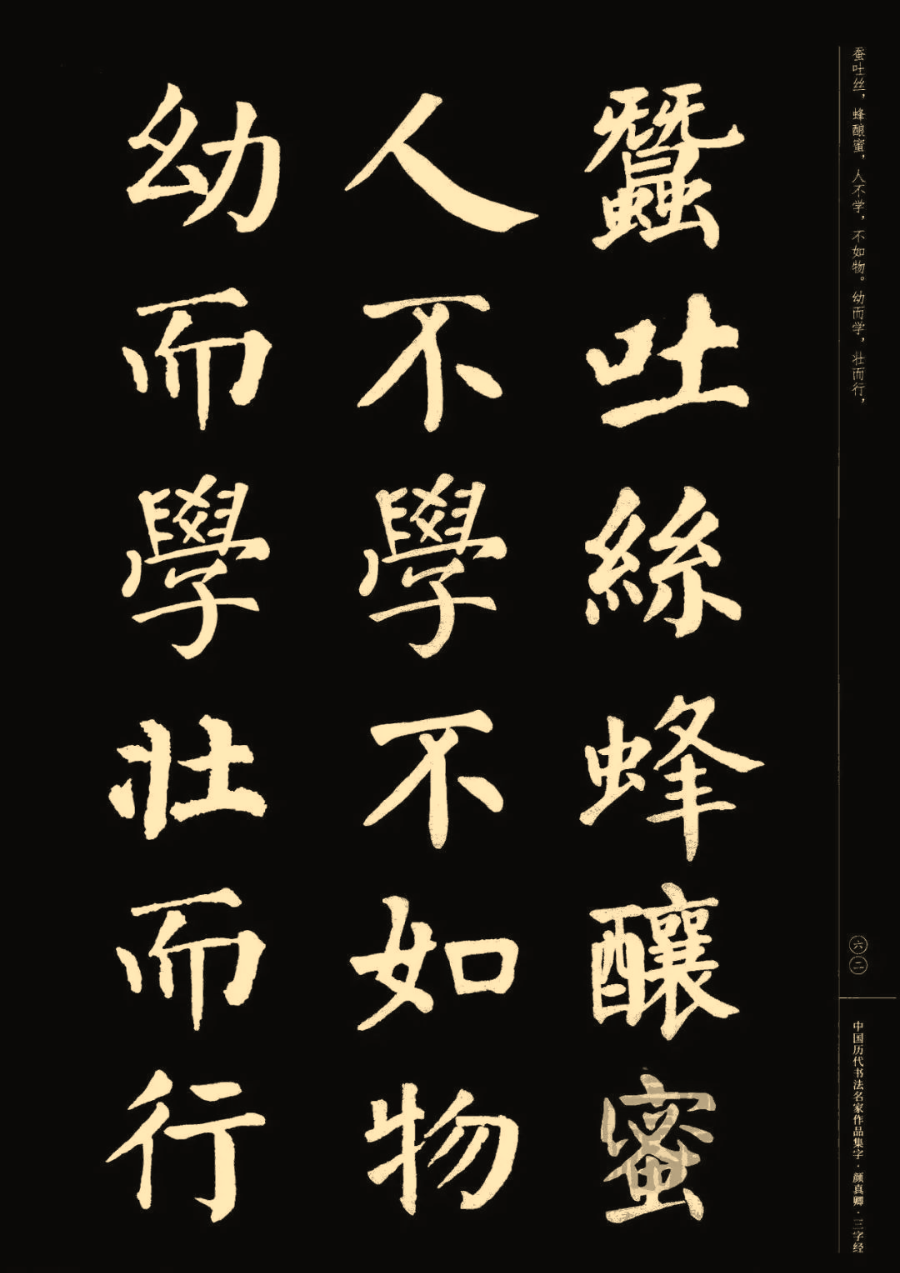 蚕吐丝，蜂酿蜜，人不学，不如物。幼而学，壮而行，
六二
中国历代书法名家作品集字·颜真卿·三字经
蠶吐絲蜂釀蜜
人不學不如物
幼而學壯而行